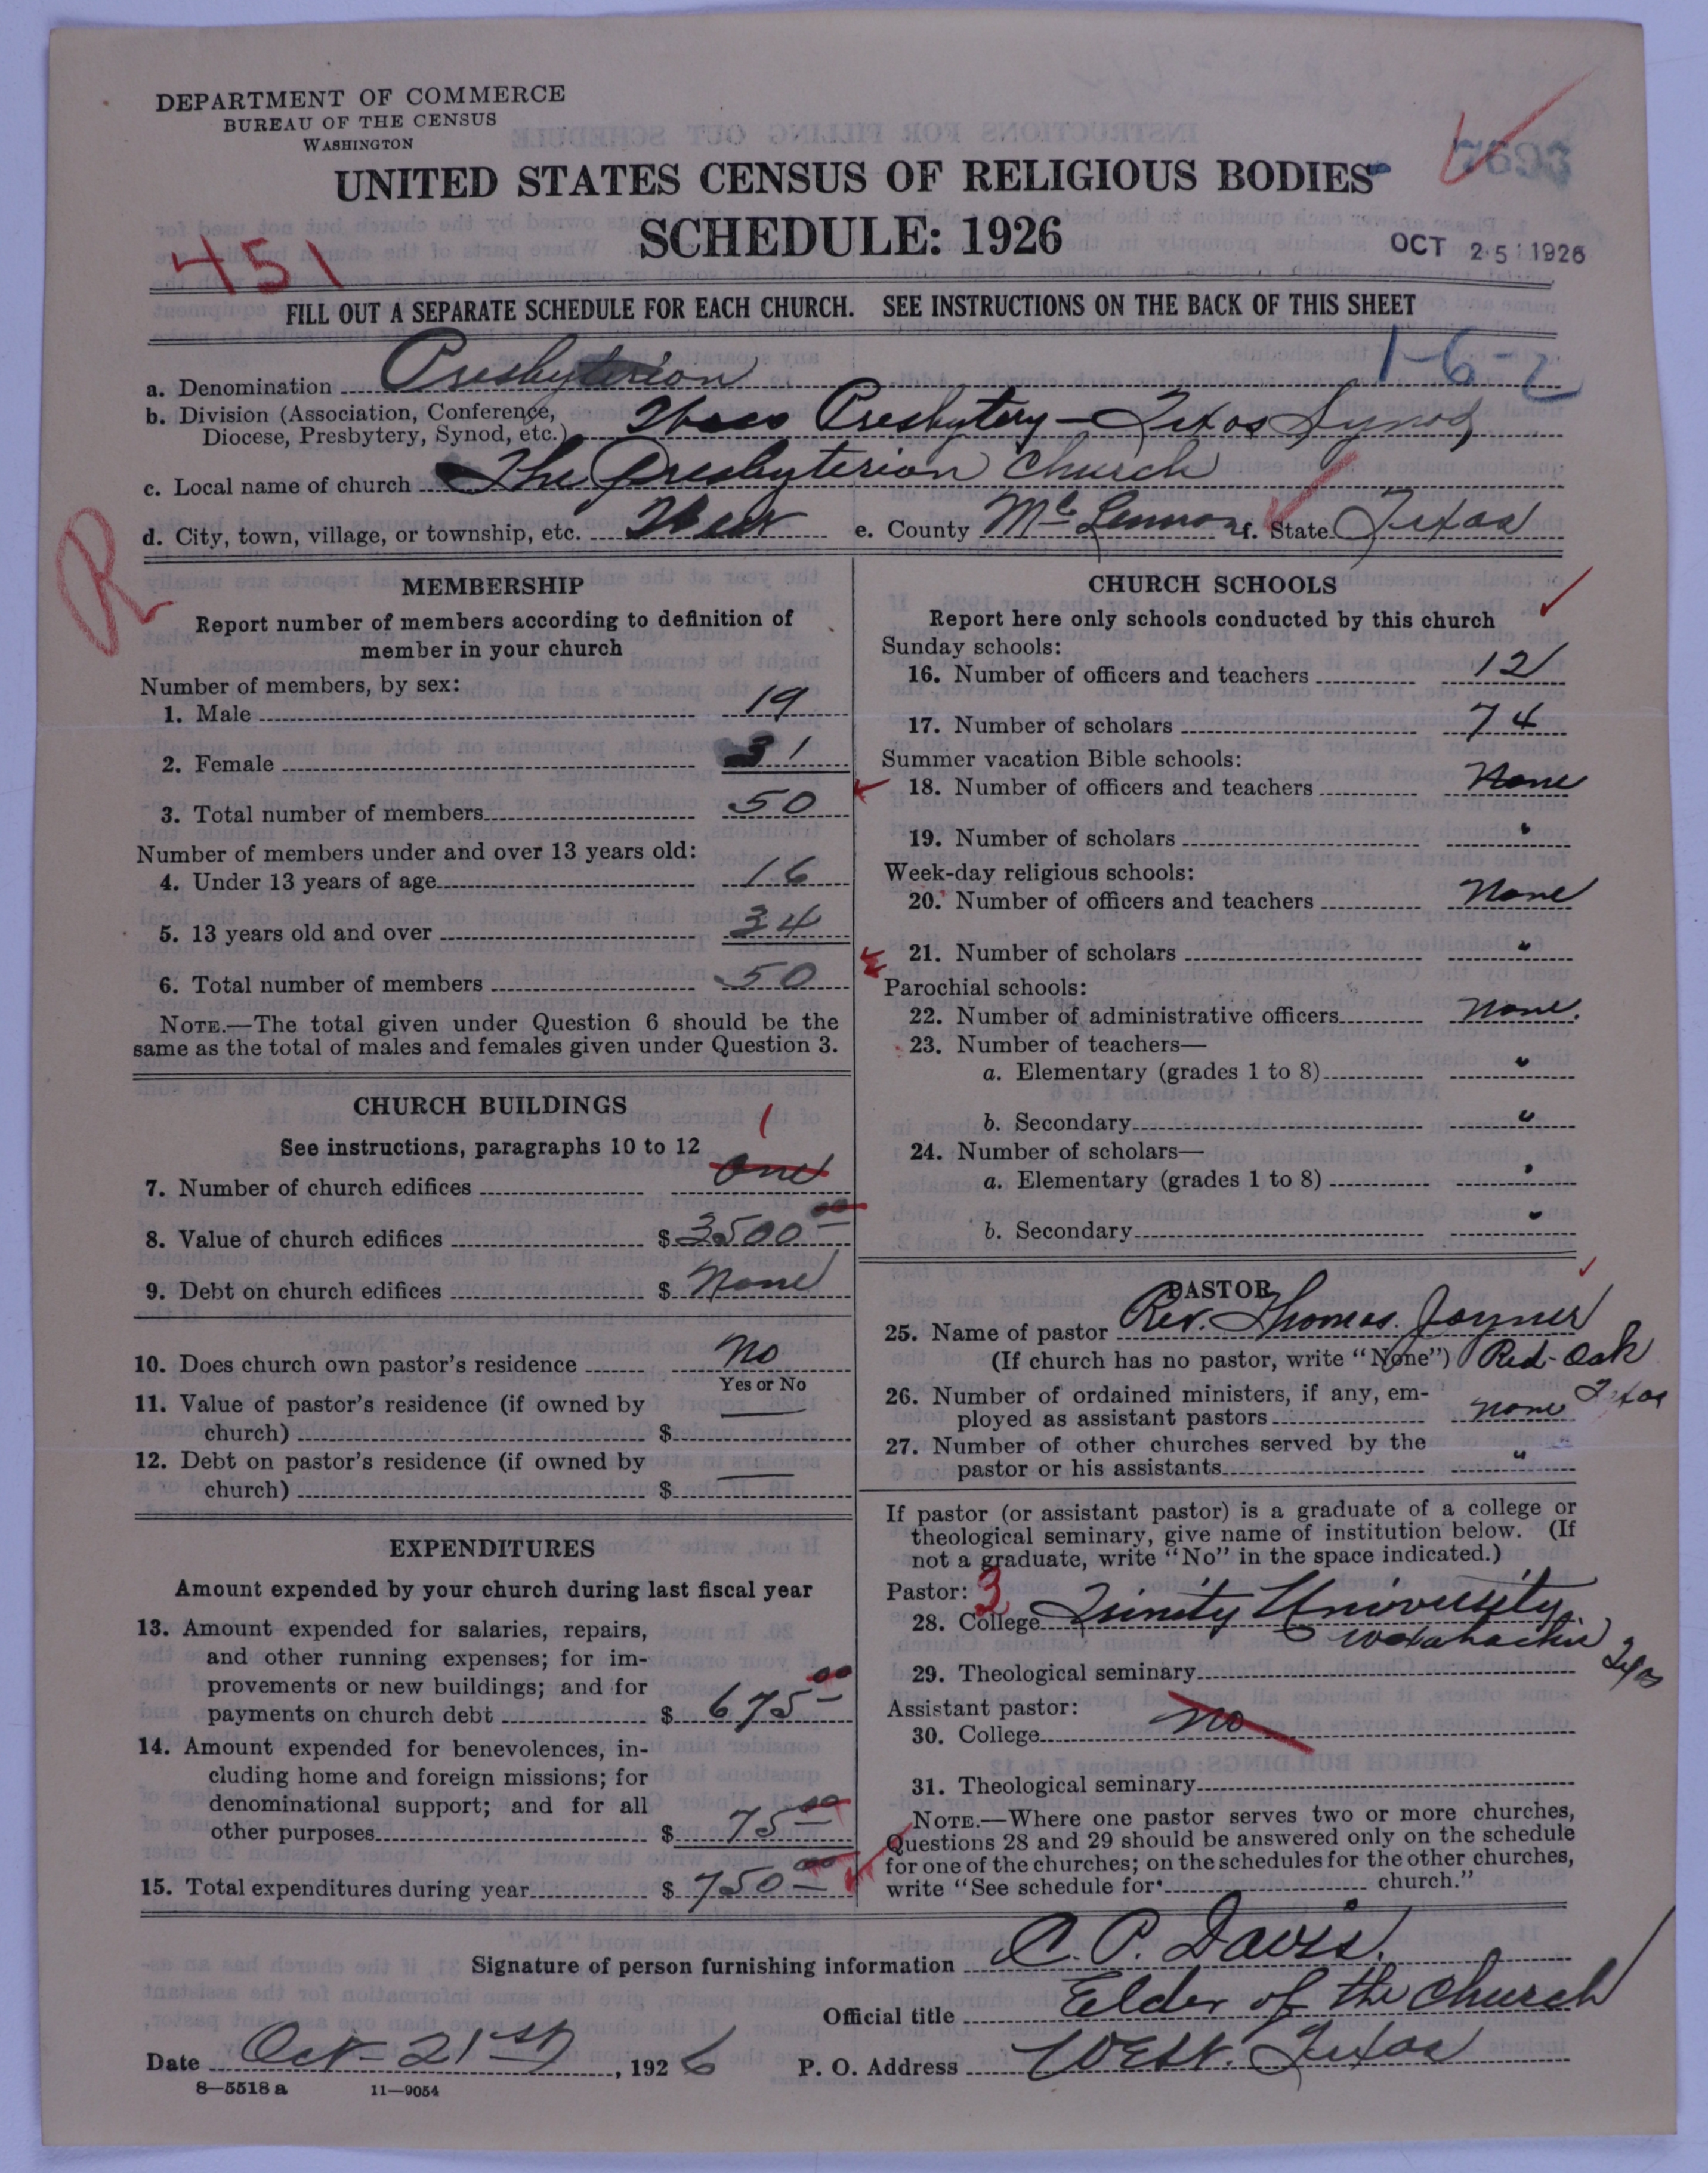 DEPARTMENT OF COMMERCE
BUREAU OF THE CENSUS
WASHINGTON
UNITED STATES CENSUS OF RELIGIOUS BODIES
SCHEDULE: 1926
451
OCT 25 1926
FILL OUT A SEPARATE SCHEDULE FOR EACH CHURCH. SEE INSTRUCTIONS ON THE BACK OF THIS SHEET
1-6-2
a. Denomination Presbyterian
b. Division (Association, Conference,
Diocese, Presbytery, Synod, etc.) Presbytery - Texas Synod
c. Local name of church The Presbyterian Church
d. City, town, village, or township, etc. West e. County McLennon f. State Texas
R
MEMBERSHIP
Report number of members according to definition of
member in your church
Number of members, by sex:
1. Male 19
2. Female 31
3. Total number of members 50
Number of members under and over 13 years old:
4. Under 13 years of age 16
5. 13 years old and over 34
6. Total number of members 50
NOTE.—The total given under Question 6 should be the
same as the total of males and females given under Question 3.
CHURCH BUILDINGS
See instructions, paragraphs 10 to 12
1
7. Number of church edifices one
8. Value of church edifices $ 3500 00
9. Debt on church edifices $ None
10. Does church own pastor's residence No
Yes or No
11. Value of pastor's residence (if owned by
church) $
12. Debt on pastor's residence (if owned by
church) $
EXPENDITURES
Amount expended by your church during last fiscal year
13. Amount expended for salaries, repairs,
and other running expenses; for im-
provements or new buildings; and for
payments on church debt $ 675 00
14. Amount expended for benevolences, in-
cluding home and foreign missions; for
denominational support; and for all
other purposes $ 75 00
15. Total expenditures during year $ 750 00
CHURCH SCHOOLS
Report here only schools conducted by this church
Sunday schools:
16. Number of officers and teachers 12
17. Number of scholars 74
Summer vacation Bible schools:
18. Number of officers and teachers None
19. Number of scholars "
Week-day religious schools:
20. Number of officers and teachers None
21. Number of scholars "
Parochial schools:
22. Number of administrative officers None.
23. Number of teachers—
a. Elementary (grades 1 to 8) "
b. Secondary "
24. Number of scholars—
a. Elementary (grades 1 to 8) "
b. Secondary "
PASTOR
25. Name of pastor Rev. Thomas. Joyner
(If church has no pastor, write "None") Red-Oak
Texas
26. Number of ordained ministers, if any, em-
ployed as assistant pastors none
27. Number of other churches served by the
pastor or his assistants "
If pastor (or assistant pastor) is a graduate of a college or
theological seminary, give name of institution below. (If
not a graduate, write "No" in the space indicated.)
Pastor: 3
28. College Trinity University
Waxahachie Texas
29. Theological seminary
Assistant pastor:
30. College no
31. Theological seminary
NOTE.—Where one pastor serves two or more churches,
Questions 28 and 29 should be answered only on the schedule
for one of the churches; on the schedules for the other churches,
write "See schedule for church."
Signature of person furnishing information C. P. Davis.
Official title Elder of the Church
Date Oct - 21st, 1926 P. O. Address West. Texas
8—5518 a 11—9054